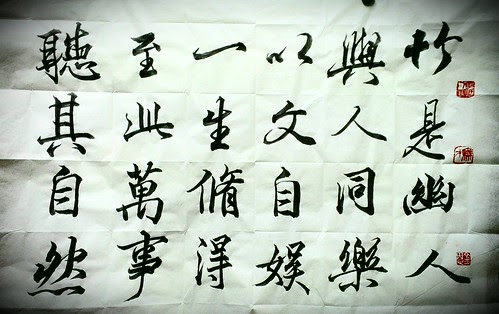 竹是幽人
與人同樂
以文自娛
一生脩得
至此萬事
聽其自然